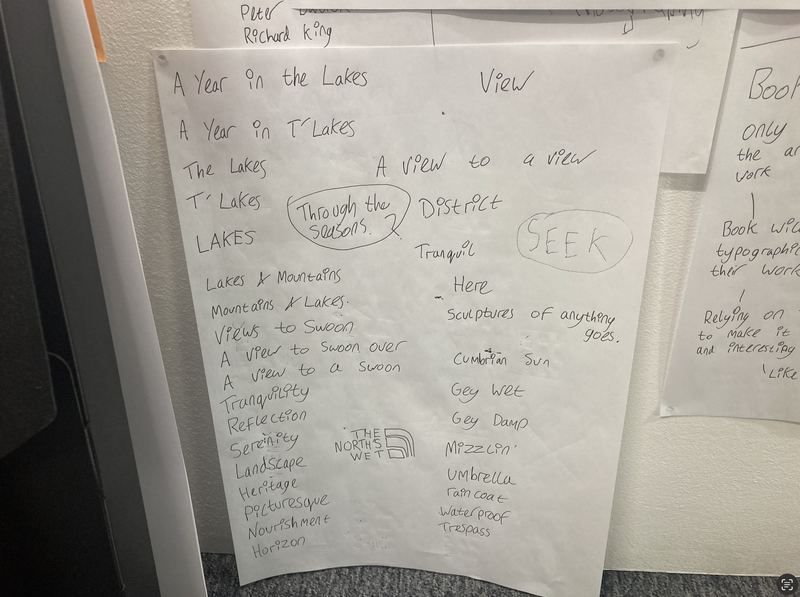 Peter
Richard King
A Year in the Lakes
View
A Year in T' Lakes
The Lakes
A view to a view
T' Lakes
Through the
seasons.?
District
LAKES
SEEK
Tranquil
Lakes & Mountains
Here
Mountains & Lakes.
Sculptures of anything
goes.
Views to Swoon
A view to swoon over
Cumbrian Sun
A view to a swoon
Tranquility
Gey Wet
Reflection
Gey Damp
Serenity
THE
NORTHS
WET
Mizzlin'
Landscape
Umbrella
Heritage
raincoat
Picturesque
Waterproof
Nourishment
Trespass
Horizon
Book
only
the ar
work
Book wid
typographic
their work
Relying on
to make it
and interesting
Like